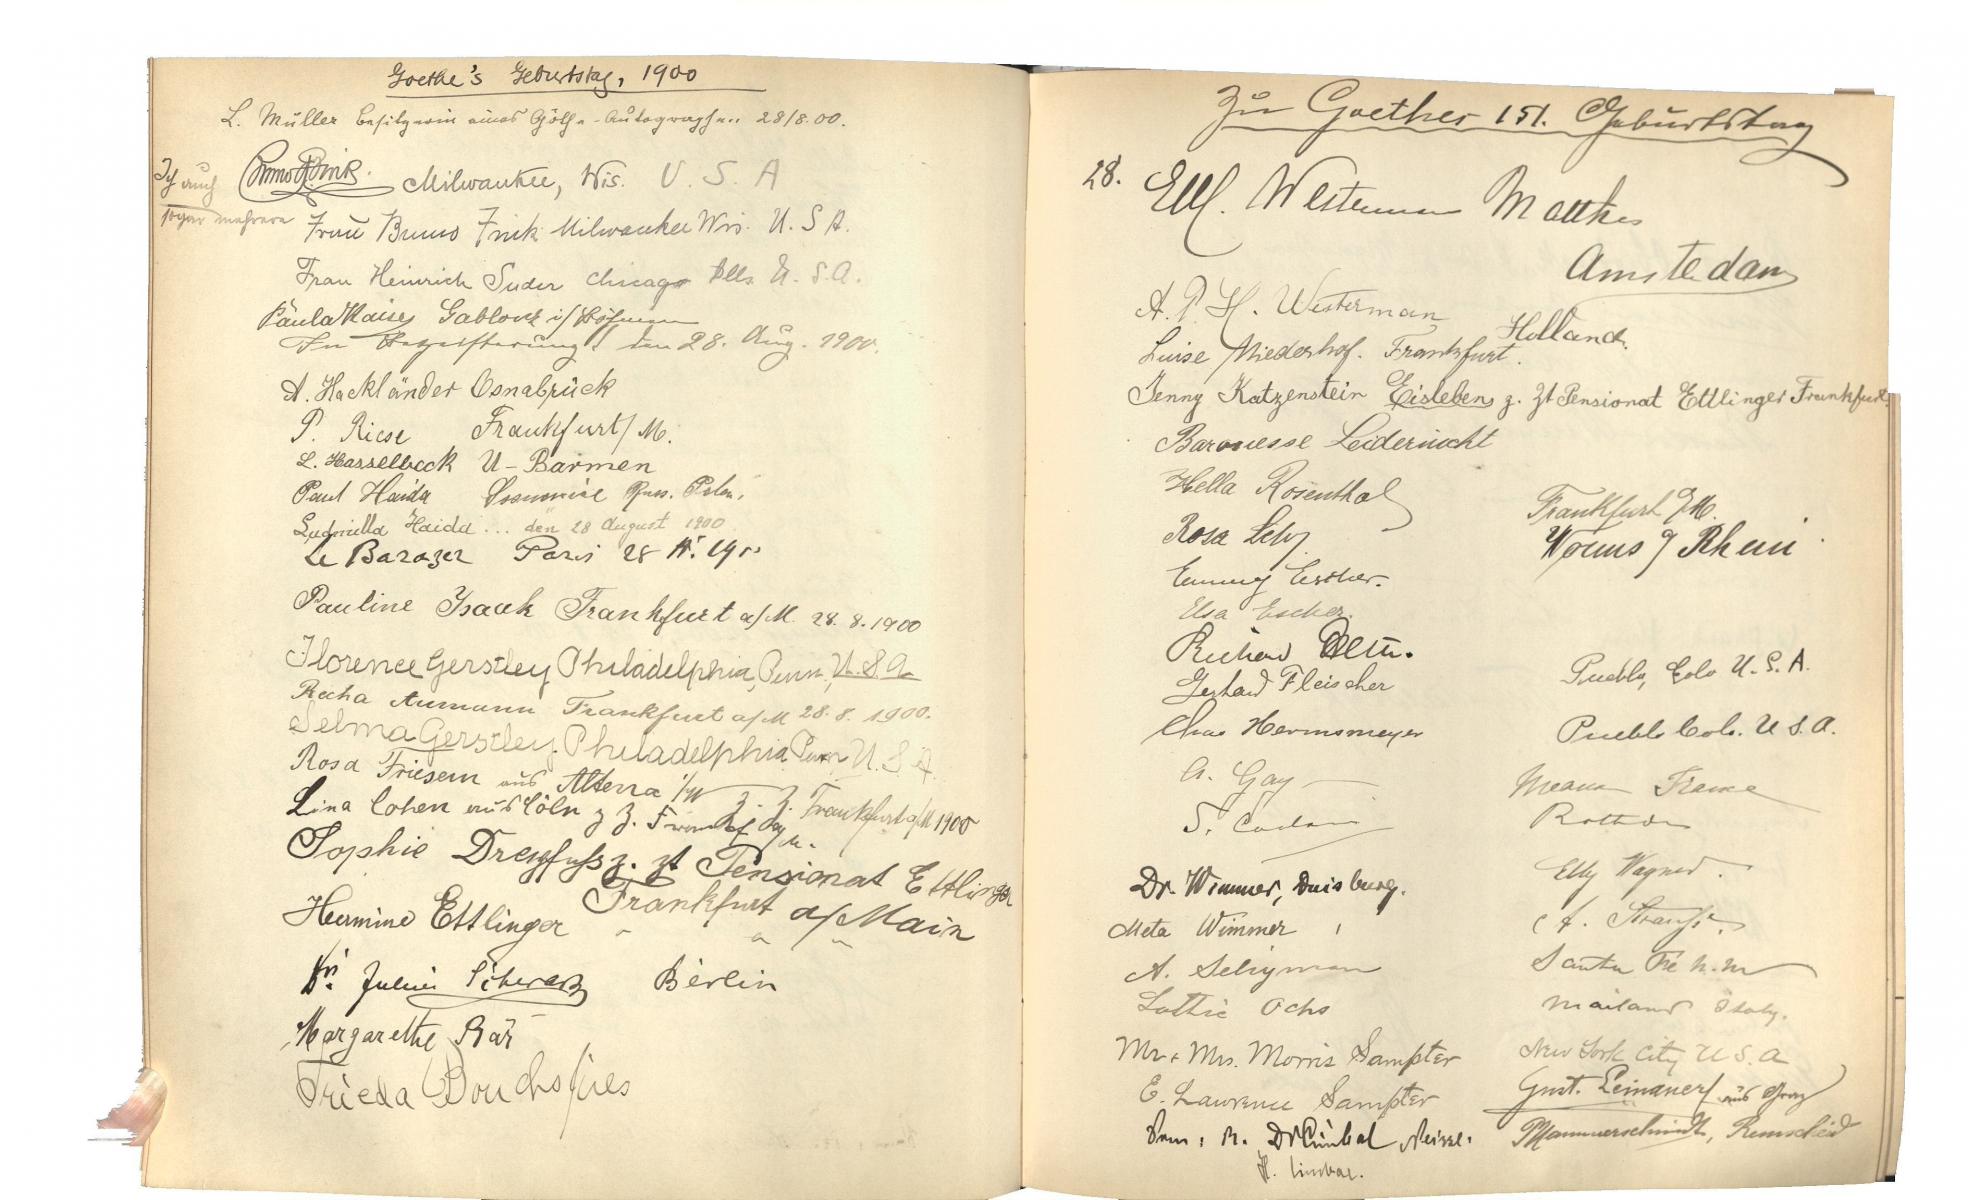 Goethe's Geburtstag, 1900
L. Müller Besitzerin eines Göthe-Autographen 28/8.00.
Ich auch
sogar mehrere
Bruno Fink. Milwaukee, Wis. U. S. A
Frau Bruno Fink Milwaukee Wis. U. S A.
Frau Heinrich Suder Chicago Ills. U. S. A.
Paula Kaiser Gablonz
In Begeisterung! den 28. Aug. 1900.
A. Hackländer Osnabrück
P. Riese Frankfurt/M.
L. Hasselbeck U-Barmen
Paul Haida Russ. Polen.
Ludmilla Haida ... den 28 August 1900
Le Barazer Paris 28
Pauline Isaak Frankfurt a/M. 28. 8. 1900
Florence Gerstley Philadelphia, Penn, U. S. A
Recha Aumann Frankfurt a/M 28. 8. 1900.
Selma Gerstley Philadelphia Penn U. S A
Rosa Friesem aus Altena i/W z. Z. Frankfurt a/M 1900
Lina Cohen aus Cöln z Z. Frankf a/M.
Sophie Dreyfuss z. Zt Pensionat Ettlinger
Frankfurt a/Main
Hermine Ettlinger " " "
Dr. Julius Schwarz Berlin
Margarethe Bär
Frieda
Zu Goethes 151. Geburtstag
28. Westerman Matthes
Amsterdam
A. P. H. Westerman Holland.
Luise Niederhof. Frankfurt.
Jenny Katzenstein Eisleben z. Zt Pensionat Ettlinger Frankfurt.
Baronesse Leidernicht
Hella Rosenthal Frankfurt a/M.
Rosa Levy Worms a/ Rhein
Emmy Escher.
Elsa Escher.
Richard
Gerhard Fleischer Pueblo, Colo U. S. A.
Chas Hermsmeyer Pueblo Colo. U S. A.
A. Gay Meaux France
S.
Dr. Wimmer, Duisburg. Elly Wagner.
Meta Wimmer " A. Strauss.
A. Seligman Santa Fé N. M
Lottie Ochs Mailand Italy.
Mr & Mrs. Morris Sampter New York City U. S. A
E. Lawrence Sampter Gust. aus Graz
Dr Cimbal Neisse. Pflammerschmidt, Remscheid
H. Cimbal.